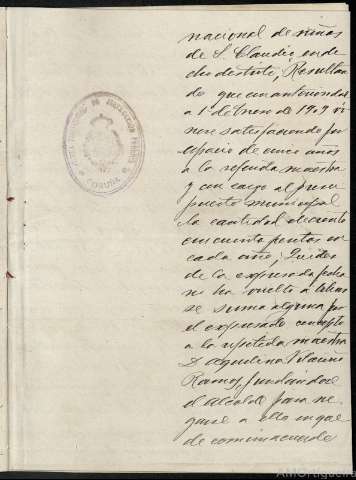 nacional de niñas
de S. Claudio, en de
cho distrito; Resultan
do que con anterioridad
a 1º de Enero de 1909 vi
nose satisfaciendo por
espacio de cinco años
a la referida maestra
y con cargo al presu
puesto municipal
la cantidad de ciento
cincuenta pesetas en
cada año;
de la expresada fecha
no ha vuelto a
se suma alguna por
el expresado concepto
a la repetida maestra
Dª Aquilina
Ramos, fundándose
el Alcalde para ne
garse a ello en que
de comun acuerdo
JUNTA PROVINCIAL DE INSTRUCCION PUBLICA
CORUÑA
AMOrtigueira